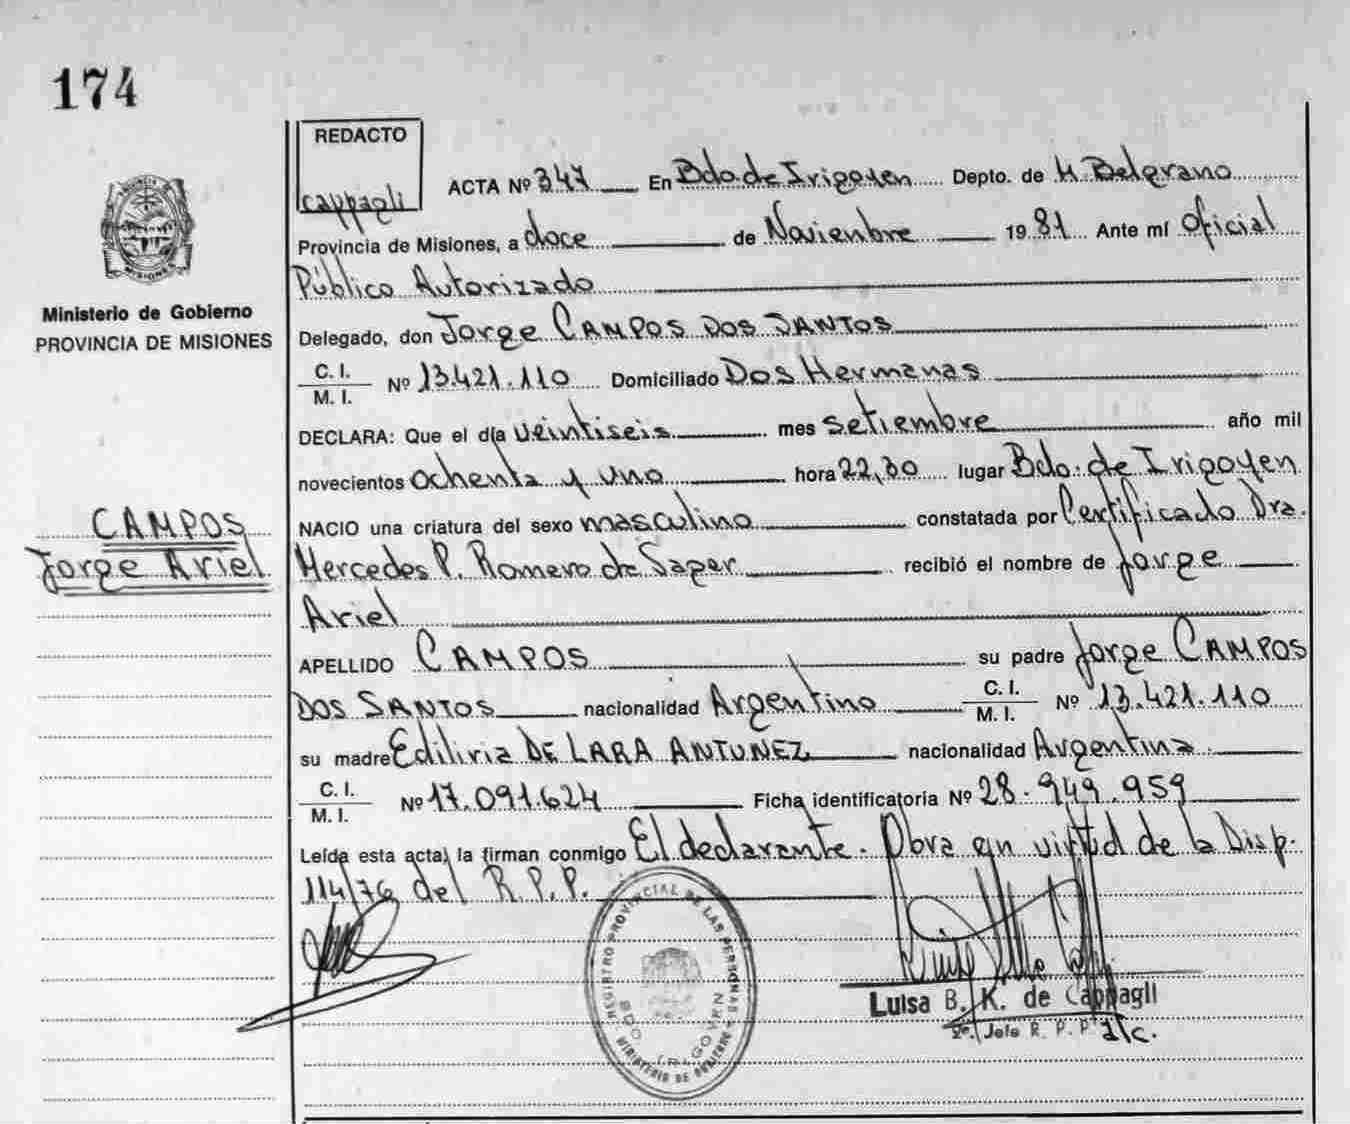 174
REDACTO
cappagli
ACTA Nº 347 En Bdo. de Irigoyen Depto. de M. Belgrano
Provincia de Misiones, a doce de Noviembre 1981 Ante mí Oficial
Público Autorizado
Delegado, don Jorge CAMPOS DOS SANTOS
C. I.
M. I. Nº 13.421.110 Domiciliado Dos Hermanas
DECLARA: Que el día veintiseis mes setiembre año mil
novecientos ochenta y uno hora 22,30 lugar Bdo. de Irigoyen
NACIO una criatura del sexo masculino constatada por Certificado Dra.
Mercedes P. Romero de Saper recibió el nombre de Jorge
Ariel
APELLIDO CAMPOS su padre Jorge CAMPOS
DOS SANTOS nacionalidad Argentino C. I. M. I. Nº 13.421.110
su madre Ediliria DE LARA ANTUNEZ nacionalidad Argentina
C. I.
M. I. Nº 17.091.624 Ficha identificatoria Nº 28.949.959
Leída esta acta, la firman conmigo El declarante. Obra en virtud de la Disp.
114/76 del R.P.P.
Ministerio de Gobierno
PROVINCIA DE MISIONES
CAMPOS
Jorge Ariel
REGISTRO PROVINCIAL DE LAS PERSONAS
MINISTERIO DE GOBIERNO
BDO. IRIGOYEN
Luisa B. K. de Cappagli
2º Jefe R. P. P. a/c.